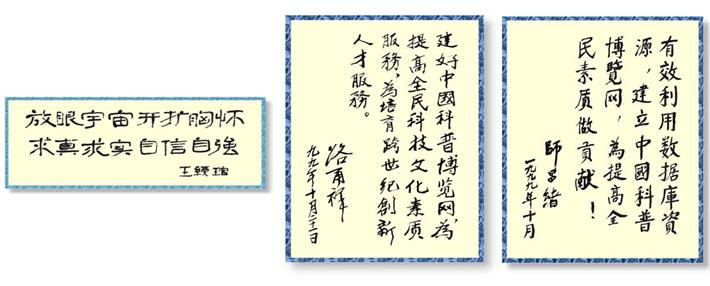 放眼宇宙开扩胸怀
求真求实自信自強
王绶琯
建好中國科普博览网，為
提高全民科技文化素质
服務，為培育跨世纪創新
人才服務。
路甬祥
九九年十月
有效利用数据庫資
源，建立中國科普
博覽网，為提高全
民素质做貢献！
師昌緒
一九九九年十月